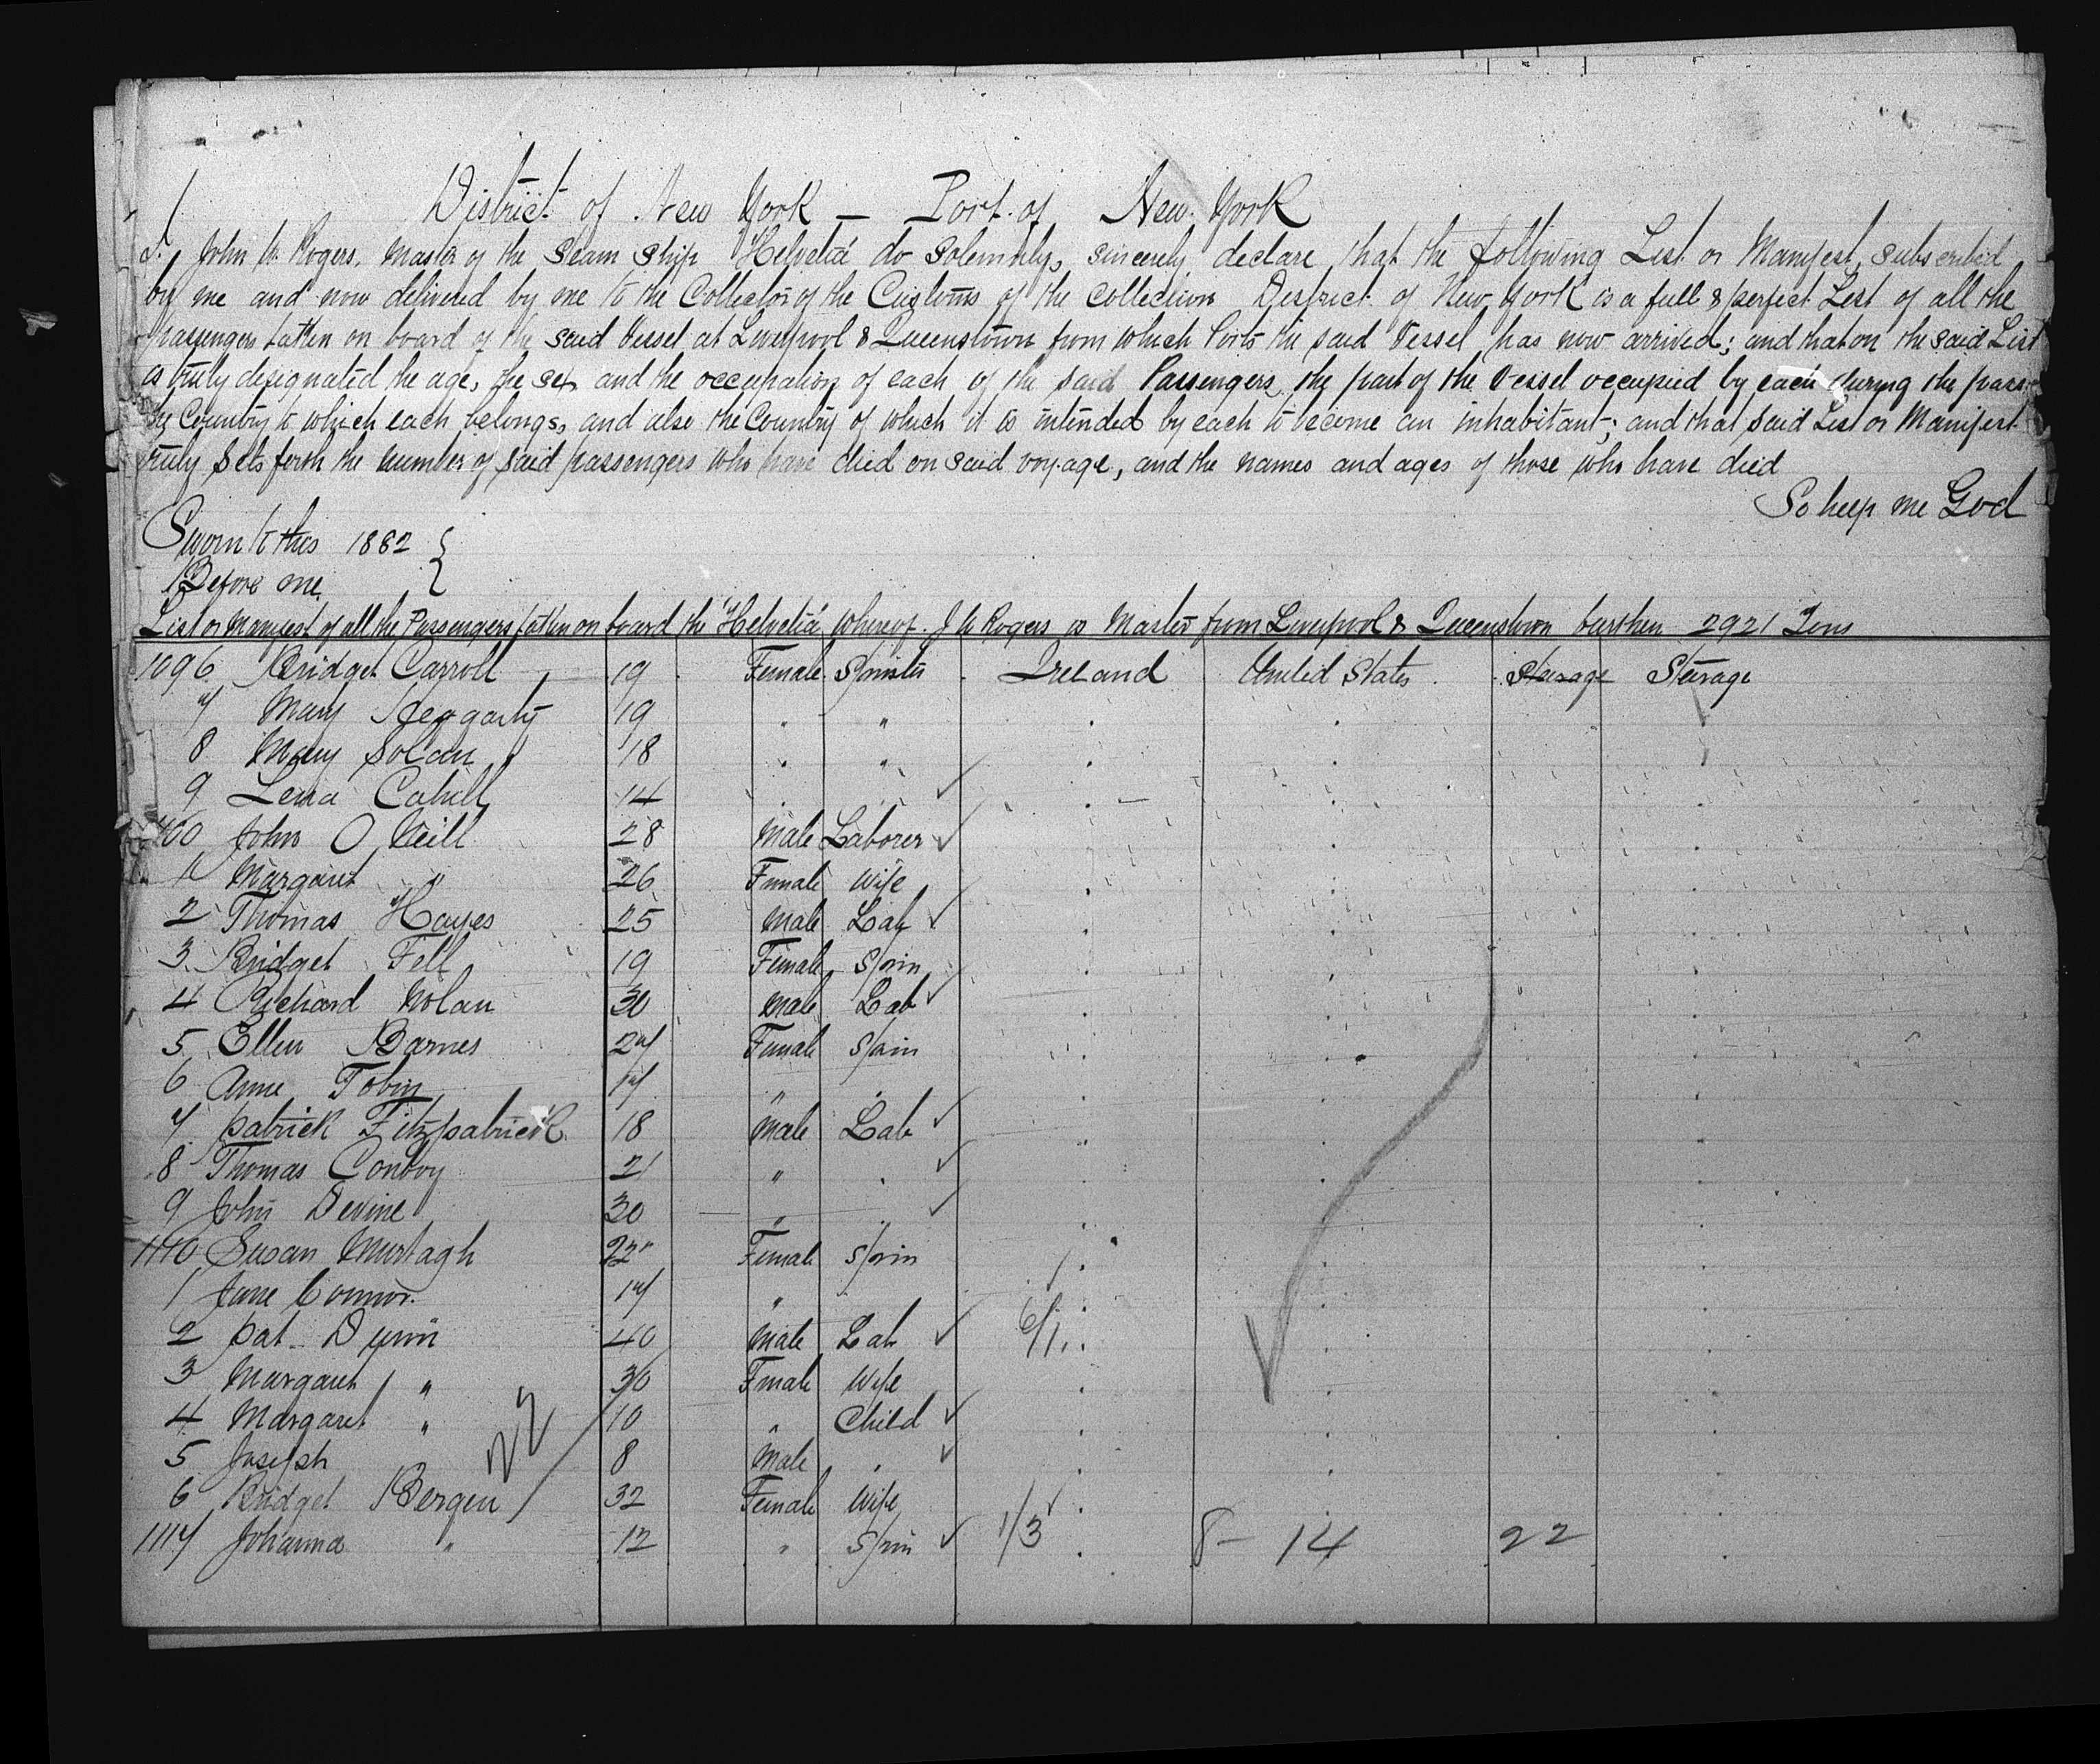 District of New York — Port of New York
I. John W. Rogers, Master of the Steam Ship "Helvetia" do Solemnly, sincerely declare that the following List or Manifest, subscribed
by me and now delivered by me to the Collector of the Customs of the Collection District of New York is a full & perfect List of all the
passengers taken on board of the said Vessel at Liverpool & Queenstown from which Ports the said Vessel has now arrived; and that on the said List
is truly designated the age, the sex and the occupation of each of the said Passengers, the part of the Vessel occupied by each during the passage
the Country to which each belongs, and also the Country of which it is intended by each to become an inhabitant; and that said List or Manifest
truly sets forth the number of said passengers who have died on said voyage, and the names and ages of those who have died
So help me God
Sworn to this 1882
Before me,
List or Manifest of all the Passengers taken on board the "Helvetia" whereof J W Rogers is Master from Liverpool & Queenstown burthen 2921 Tons
1096 Bridget Carroll 19 Female Spinster Ireland United States Steerage Steerage
7 Mary Heggarty 19 " "
8 Mary Solan 18 " "
9 Lena Cahill 14
1100 John O Neill 28 Male Laborer
1 Margaret " 26 Female Wife
2 Thomas Hayes 25 Male Lab
3 Bridget Fell 19 Female Spin
4 Richard Nolan 30 Male Lab
5 Ellen Barnes 27 Female Spin
6 Anne Tobin 17 "
7 Patrick Fitzpatrick 18 Male Lab
8 Thomas Conboy 21 "
9 John Devine 30 "
1110 Susan Murtagh 22 Female Spin
1 Jane Connor 17 "
2 Pat Dunn 40 Male Lab 6/1
3 Margaret " 30 Female Wife
4 Margaret " 10 " Child
5 Joseph 8 Male
6 Bridget Bergen 32 Female Wife
1117 Johanna " 12 " Spin 1/3 8 - 14 22
22